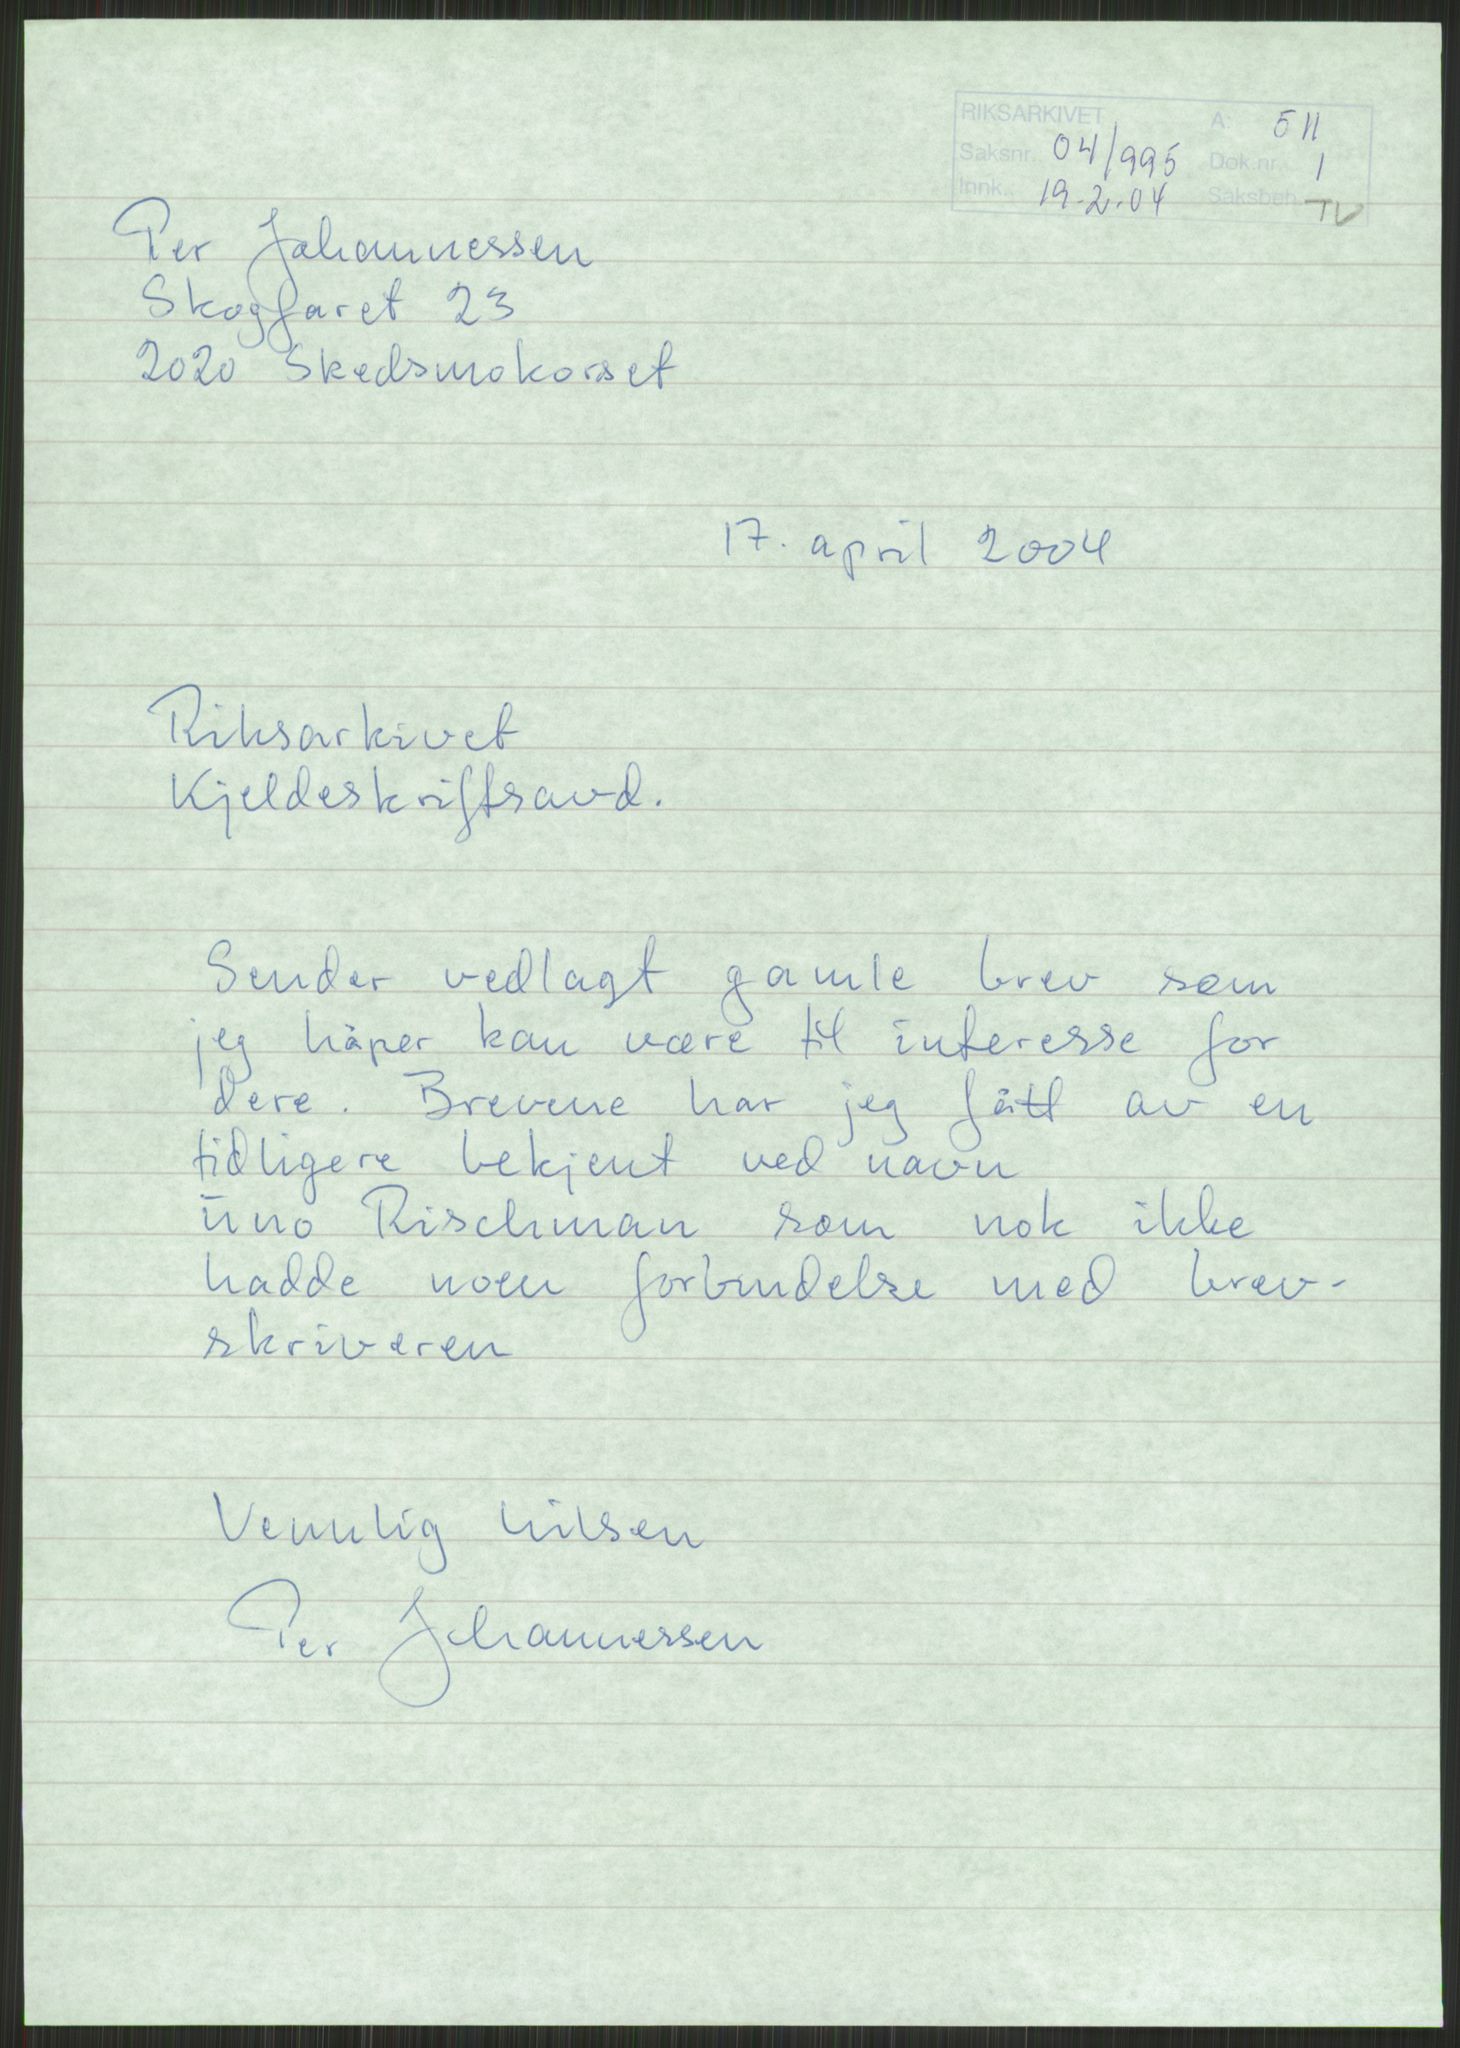 RIKSARKIVET A: 511
Saksnr. 04/995 Dok.nr. 1
Innk. 19.2.04 Saksbeh. TV
Per Johannessen
Skogfaret 23
2020 Skedsmokorset
17. april 2004
Riksarkivet
Kjeldeskriftsavd.
Sender vedlagt gamle brev som
jeg håper kan være til interesse for
dere. Brevene har jeg fått av en
tidligere bekjent ved navn
Uno Rischman som nok ikke
hadde noen forbindelse med brev-
skriveren
Vennlig hilsen
Per Johannessen